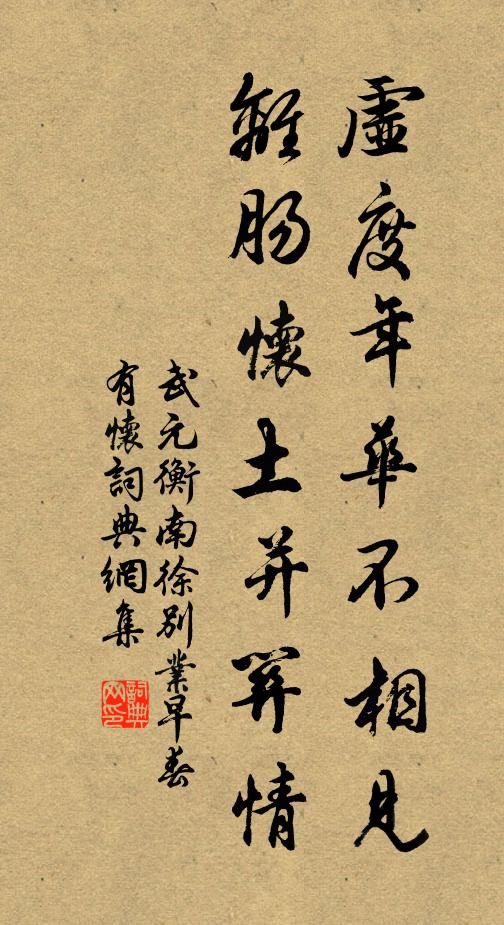 虛度年華不相見
離腸懷土并關情
武元衡南徐別業早春
有懷詞典網集
詞典
网印